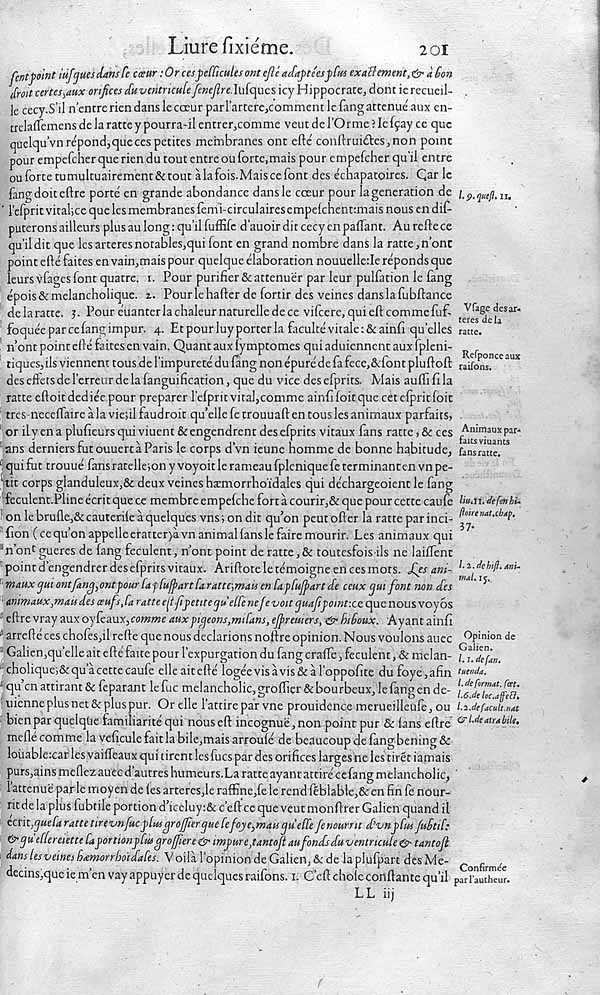 Liure sixiéme. 201
sent point iusques dans le cœur : Or ces pellicules ont esté adaptées plus exactement, & à bon
droit certes, aux orifices du ventricule senestre. Iusques icy Hippocrate, dont ie recueil-
le cecy. S'il n'entre rien dans le cœur par l'artere, comment le sang attenué aux en-
trelassemens de la ratte y pourra-il entrer, comme veut de l'Orme? Ie sçay ce que
quelqu'vn répond, que ces petites membranes ont esté construictes, non point
pour empescher que rien du tout entre ou sorte, mais pour empescher qu'il entre
ou sorte tumultuairement & tout à la fois. Mais ce sont des échapatoires. Car le
sang doit estre porté en grande abondance dans le cœur pour la generation de
l'esprit vital; ce que les membranes semi-circulaires empeschent: mais nous en dis-
puterons ailleurs plus au long: qu'il suffise d'auoir dit cecy en passant. Au reste ce
qu'il dit que les arteres notables, qui sont en grand nombre dans la ratte, n'ont
point esté faites en vain, mais pour quelque élaboration nouuelle: Ie réponds que
leurs vsages sont quatre. 1. Pour purifier & attenuër par leur pulsation le sang
épois & melancholique. 2. Pour le haster de sortir des veines dans la substance
de la ratte. 3. Pour éuanter la chaleur naturelle de ce viscere, qui est comme suf-
foquée par ce sang impur. 4. Et pour luy porter la faculté vitale: & ainsi qu'elles
n'ont point esté faites en vain. Quant aux symptomes qui aduiennent aux spleni-
tiques, ils viennent tous de l'impureté du sang non épuré de sa fece, & sont plustost
des effets de l'erreur de la sanguification, que du vice des esprits. Mais aussi si la
ratte estoit dediée pour preparer l'esprit vital, comme ainsi soit que cet esprit soit
tres-necessaire à la vie, il faudroit qu'elle se trouuast en tous les animaux parfaits,
or il y en a plusieurs qui viuent & engendrent des esprits vitaux sans ratte, & ces
ans derniers fut ouuert à Paris le corps d'vn ieune homme de bonne habitude,
qui fut trouué sans ratelle; on y voyoit le rameau splenique se terminant en vn pe-
tit corps glanduleux, & deux veines hæmorrhoïdales qui déchargeoient le sang
feculent. Pline écrit que ce membre empesche fort à courir, & que pour cette cause
on le brusle, & cauterise à quelques vns; on dit qu'on peut oster la ratte par inci-
sion (ce qu'on appelle eratter) à vn animal sans le faire mourir. Les animaux qui
n'ont gueres de sang feculent, n'ont point de ratte, & toutesfois ils ne laissent
point d'engendrer des esprits vitaux. Aristote le témoigne en ces mots. Les ani-
maux qui ont sang, ont pour la pluspart la ratte; mais en la pluspart de ceux qui font non des
animaux, mais des œufs, la ratte est si petite qu'elle ne se voit quasi point: ce que nous voyõs
estre vray aux oyseaux, comme aux pigeons, milans, espreuiers, & hiboux. Ayant ainsi
arresté ces choses, il reste que nous declarions nostre opinion. Nous voulons auec
Galien, qu'elle ait esté faite pour l'expurgation du sang crasse, feculent, & melan-
cholique; & qu'à cette cause elle ait esté logée vis à vis & à l'opposite du foye, afin
qu'en attirant & separant le suc melancholic, grossier & bourbeux, le sang en de-
uienne plus net & plus pur. Or elle l'attire par vne prouidence merueilleuse, ou
bien par quelque familiarité qui nous est incognuë, non point pur & sans estre
meslé comme la vesicule fait la bile, mais arrousé de beaucoup de sang bening &
loüable: car les vaisseaux qui tirent les sucs par des orifices larges ne les tirẽt iamais
purs, ains meslez auec d'autres humeurs. La ratte ayant attiré ce sang melancholic,
l'attenuë par le moyen de ses arteres, le raffine, se le rend sẽblable, & en fin se nour-
rit de la plus subtile portion d'iceluy: & c'est ce que veut monstrer Galien quand il
écrit, que la ratte tire vn suc plus grossier que le foye, mais qu'elle se nourrit d'vn plus subtil:
& qu'elle reiette la portion plus grossiere & impure, tantost au fonds du ventricule & tantost
dans les veines hæmorrhoïdales. Voilà l'opinion de Galien, & de la pluspart des Me-
decins, que ie m'en vay appuyer de quelques raisons. 1. C'est chose constante qu'il
LL iij
l. 9. quest. 11.
Vsage des ar-
teres de la
ratte.
Response aux
raisons.
Animaux par-
faits viuants
sans ratte.
liu. 11. de son hi-
stoire nat. chap.
37.
l. 2. de hist. ani-
mal. 15.
Opinion de
Galien.
l. 1. de san.
tuenda.
l. de format. fœt.
l. 6. de loc. affect.
l. 2. de facult. nat
& l. de atra bile.
Confirmée
par l'autheur.